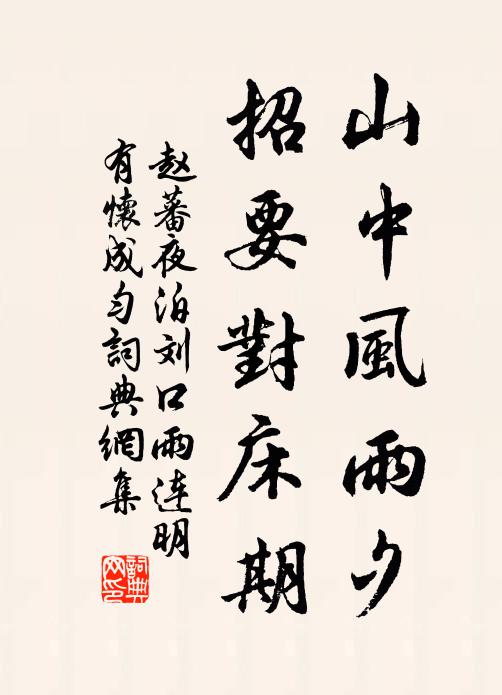 山中風雨夕
招要對床期
赵蕃夜泊刘口雨连明
有懷成勻詞典網集
詞典网印